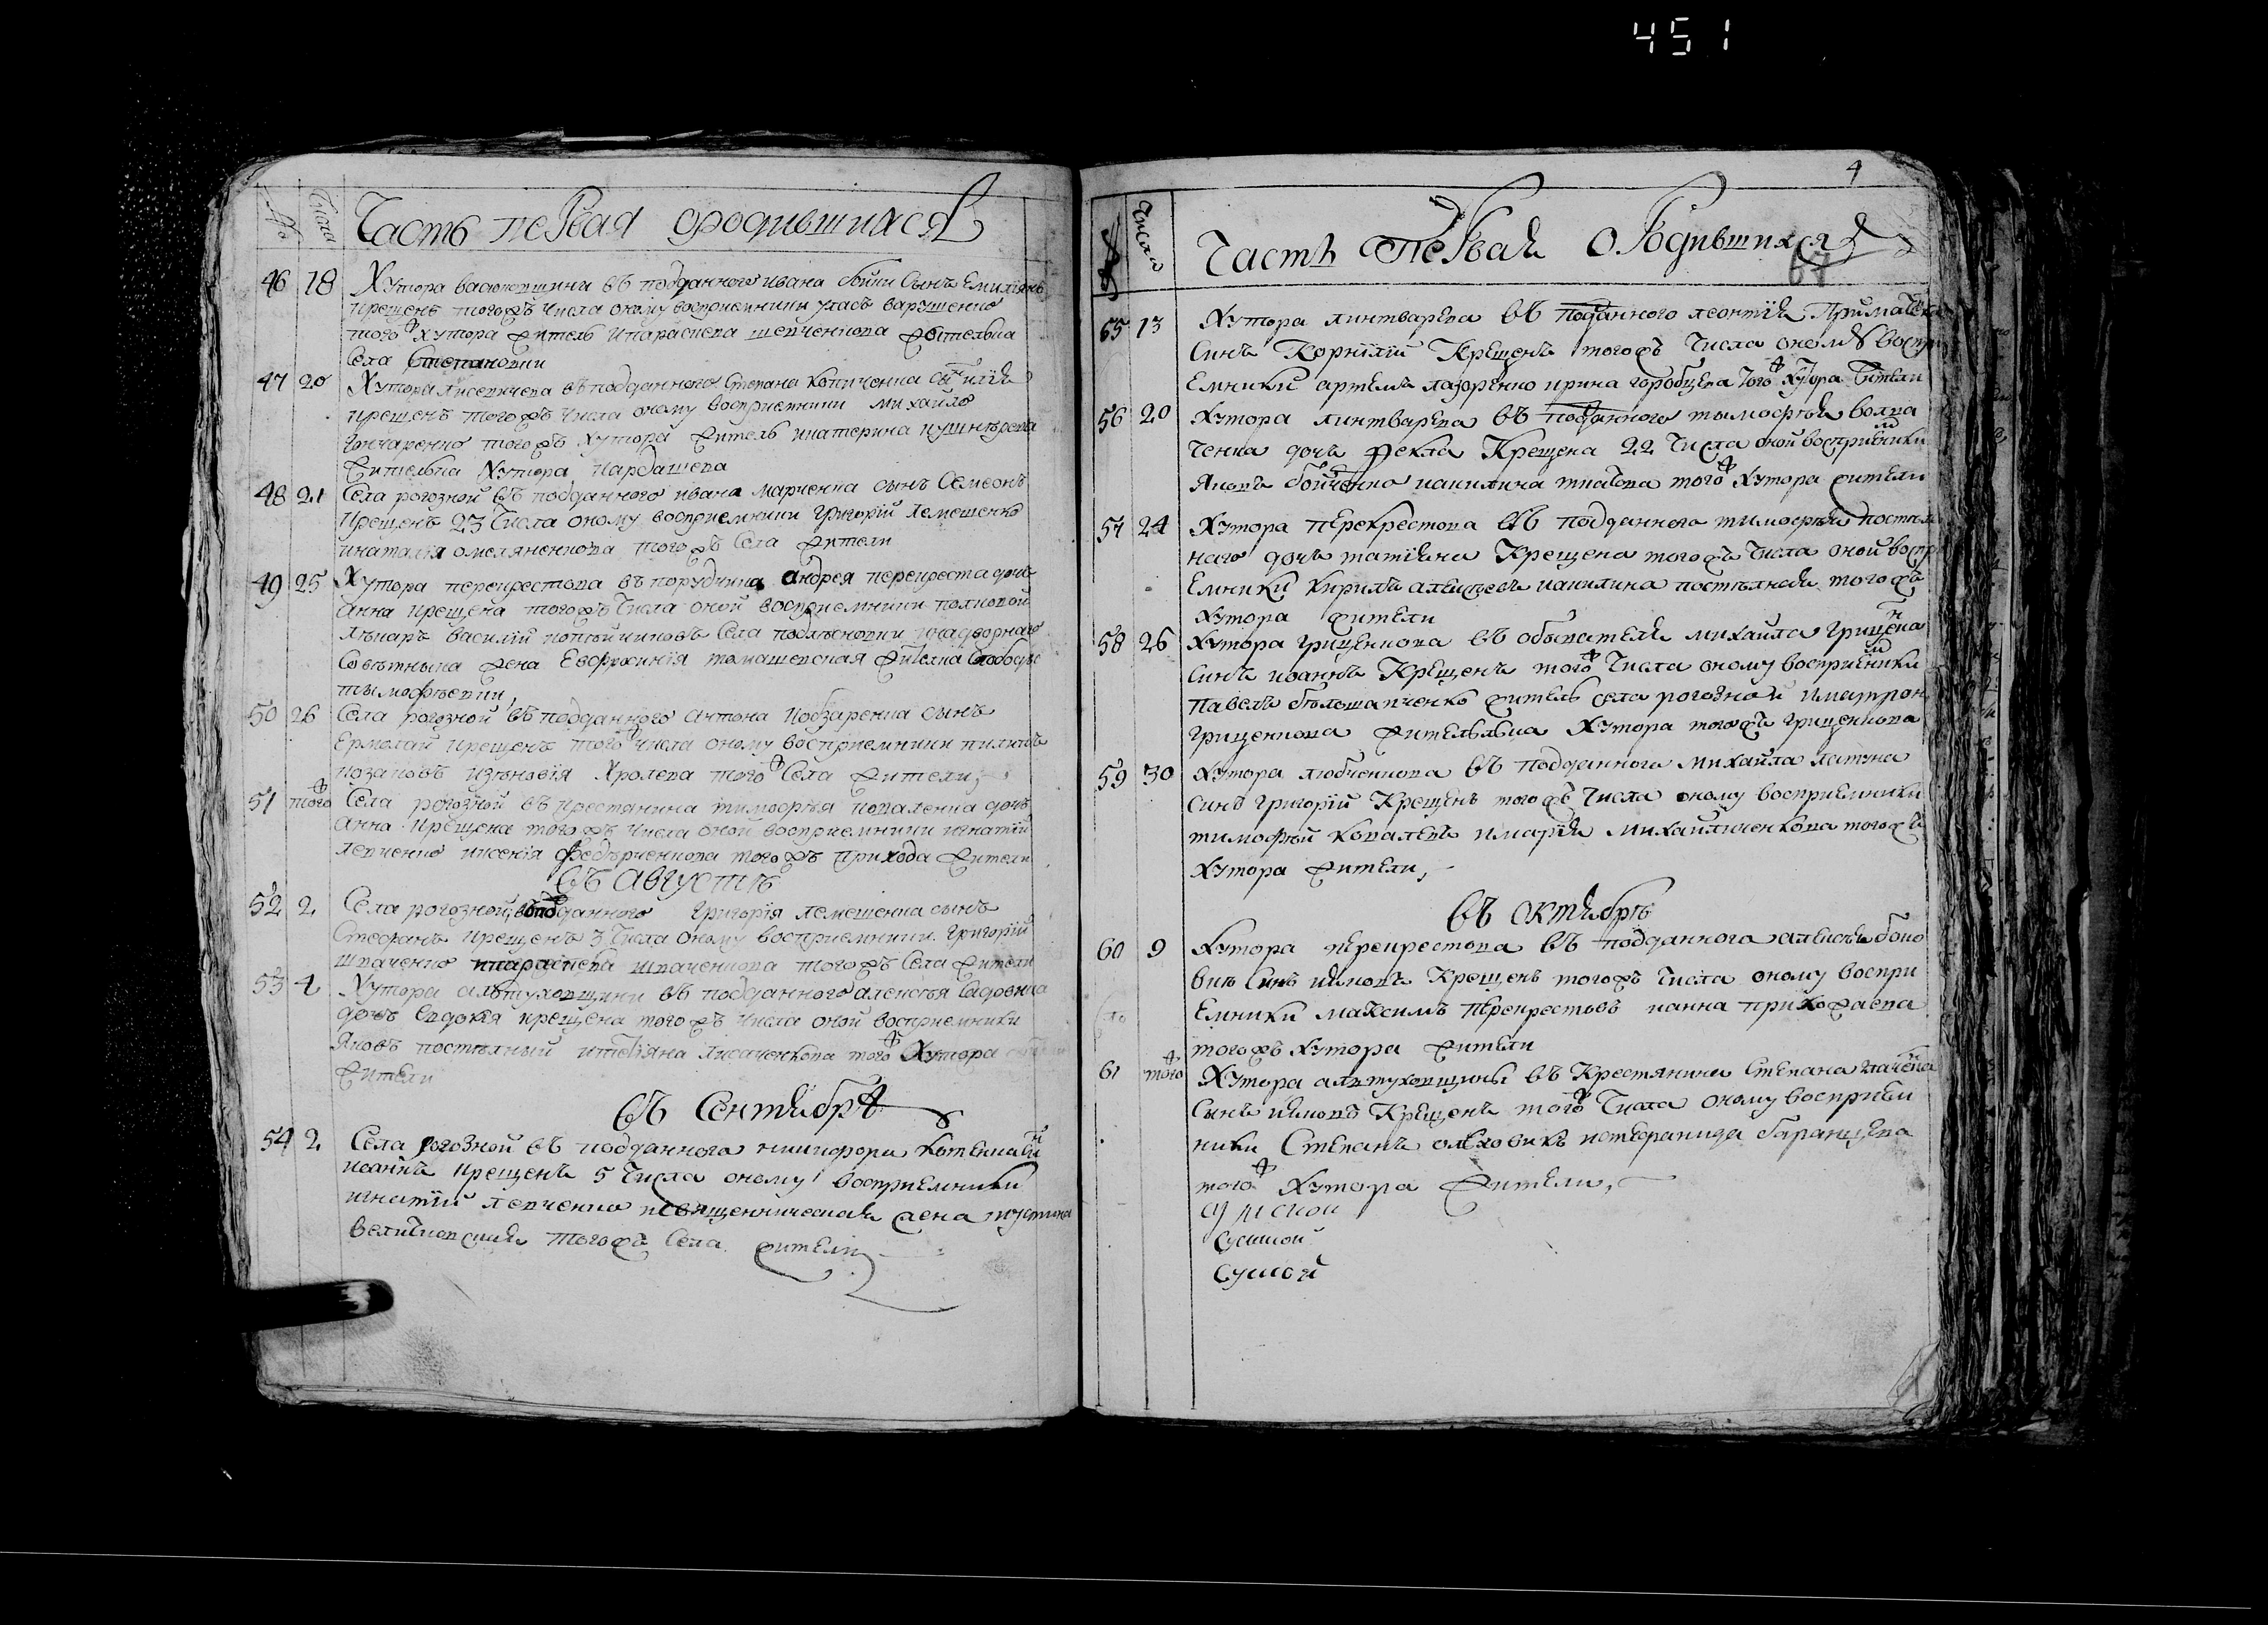 451
№ Числа Часть первая ородившихся
46 18 Хутора васюковщини въ подданного ивана бойки Сынъ Емилiянъ
крещенъ тогожъ числа оному восприемники уласъ варушенко
того ж хутора житель ипараскева шевченкова жителька
села Степановки
47 20 Хутора лисевичева въ подданного Степана копиченка сынъ илiя
крещенъ тогожъ числа оному восприемники михайло
гончаренко тогожъ хутора житель икатерина кушнѣрева
жителька хутора кардашева
48 21 Села рогозной въ подданного ивана марченка сынъ Семеонъ
крещенъ 23 числа оному восприемники григорiй лемешенко
инаталiя омеляненкова тогожъ села жители
49 25 Хутора перекрестова въ порудчика андрея перекреста дочь
анна крещена тогожъ числа оной восприемники полковой
лѣкарь василiй копѣйчиковъ села подлѣсновки инадворнаго
совѣтника жена Евфросинiя томашевская жителка слободы
тымофѣевки
50 26 Села рогозной въ подданного антона кобзаренка сынъ
Ермолай крещенъ того ж числа оному восприемники
козаковъ изѣновiя хролева того ж села жители,
51 того ж Села рогозной въ крестянина тимофѣя коваленка дочь
анна крещена тогожъ числа оной восприемники игнатiй
левченко иксенiя федѣрченкова тогожъ прихода жители
въ августѣ
52 2 Села рогозной въ подданного григорiя лемешенка сынъ
Стефанъ крещенъ 3 числа оному восприемники григорiй
шраченко ипараскева шраченкова тогожъ села жители
53 4 Хутора алтуховщини въ подданного алексѣя садовника
дочь Евдокiя крещена тогожъ числа оной восприемники
яковъ постѣлный итатiяна лисаченкова того ж хутора
жители
въ Сентябрѣ
54 2 Села рогозной въ подданного никифора котенка синъ
иоаннъ крещенъ 5 числа оному восприемники
игнатiй левченко исвященническая жена иустина
величковская тогожъ села жители
4
№ Числа Часть первая о родившихся
67
65 13 Хутора линтварева въ подданного леонтiя
синъ Корнилiй Крещенъ тогожъ числа оному воспри
емники артемъ лазоренко ирина горобцева того ж хутора жители
56 20 Хутора линтварева въ подданного тымофѣя волва
ченка дочь Фекла Крещена 22 числа оной восприемники
яковъ бойченко иакилина того ж хутора жители
57 24 Хутора перекрестова въ подданного тимофѣя постѣл
наго дочь татiяна Крещена тогожъ числа оной воспри
емники кирилъ алексѣевъ иакилина постѣлная тогожъ
хутора жители
58 26 Хутора грищенкова въ обывателя михаила грищенка
синъ иоаннъ Крещенъ того ж числа оному восприемники
павелъ бѣлошапченко житель села рогозной иматрон
грищенкова жителька хутора тогожъ грищенкова
59 30 Хутора любченкова въ подданного михайла латуна
синъ григорiй Крещенъ тогожъ числа оному восприемники
тимофѣй ковалевъ имарiя михайличенкова тогожъ
хутора жители,
въ октябрѣ
60 9 Хутора перекрестова въ подданного алексѣя боко
вик синъ иаковъ Крещенъ тогожъ числа оному воспри
емники максимъ перекрестовъ ианна приходаева
тогожъ хутора жители
61 того ж Хутора алтуховщины въ Крестянина Степана
Сынъ иаковъ Крещенъ того ж числа оному восприем
ники Степанъ олховикъ
того ж хутора жители,
сумской
сумской
сумой